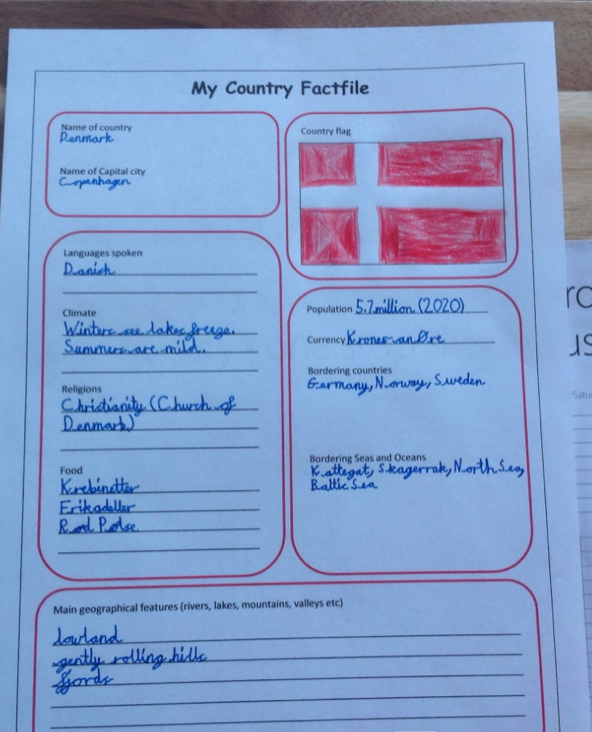 My Country Factfile
Name of country
Denmark
Name of Capital city
Copenhagen
Country flag
Languages spoken
Danish
Climate
Winters see lakes freeze.
Summers are mild.
Religions
Christianity (Church of
Denmark)
Food
Krebinetter
Frikadeller
Rød Pølse
Population 5.7 million (2020)
Currency Krones an Øre
Bordering countries
Germany, Norway, Sweden
Bordering Seas and Oceans
Kattegat, Skagerrak, North Sea,
Baltic Sea
Main geographical features (rivers, lakes, mountains, valleys etc)
lowland
gently rolling hills
fjords